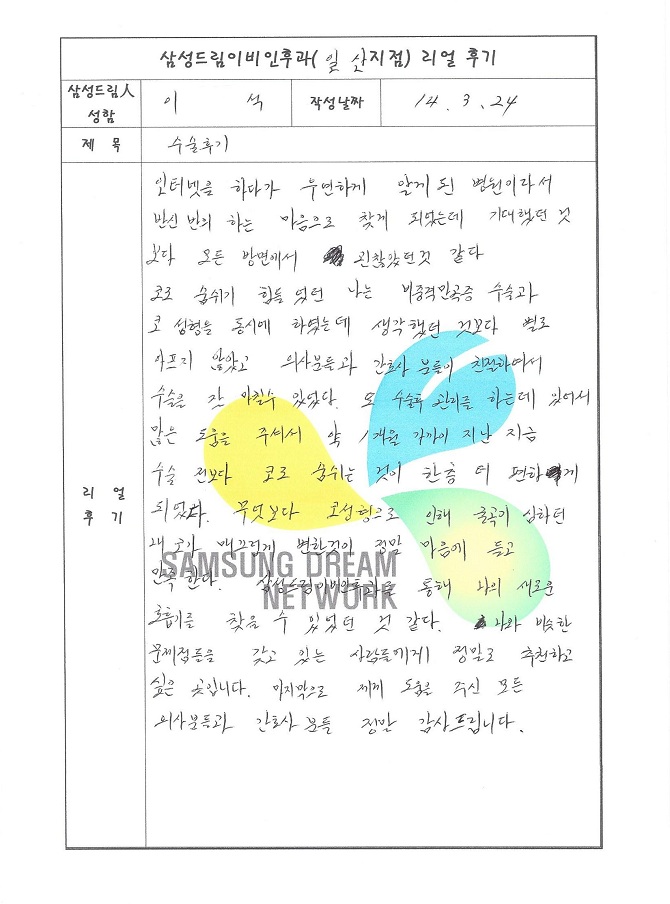 삼성드림이비인후과(일산지점) 리얼 후기
삼성드림人 성함
이 석
작성날짜
14. 3. 24
제 목
수술후기
리 얼 후 기
인터넷을 하다가 우연하게 알게 된 병원이라서
반신 반의 하는 마음으로 찾게 되었는데 기대했던 것
보다 모든 방면에서 괜찮았던것 같다
코로 숨쉬기 힘들었던 나는 비중격만곡증 수술과
코 성형을 동시에 하였는데 생각했던 것보다 별로
아프지 않았고 의사분들과 간호사 분들이 친절하여서
수술을 잘 마칠수 있었다. 또 수술후 관리를 하는데 있어서
많은 도움을 주셔서 약 1개월 가까이 지난 지금
수술 전보다 코로 숨쉬는 것이 한층 더 편하게
되었다. 무엇보다 코성형으로 인해 굴곡이 심하던
내 코가 매끄럽게 변한것이 정말 마음에 들고
만족한다. 삼성드림이비인후과를 통해 나의 새로운
호흡기를 찾을 수 있었던 것 같다. 나와 비슷한
문제점들을 갖고 있는 사람들에게 정말로 추천하고
싶은 곳입니다. 마지막으로 제게 도움을 주신 모든
의사분들과 간호사 분들 정말 감사드립니다.
SAMSUNG DREAM
NETWORK